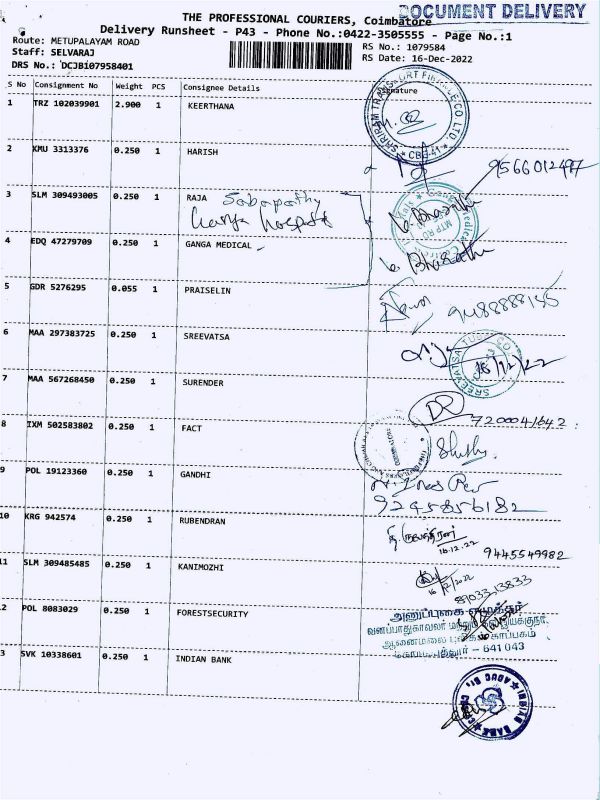 DOCUMENT DELIVERY
THE PROFESSIONAL COURIERS, Coimbatore
Delivery Runsheet - P43 - Phone No.:0422-3505555 - Page No.:1
Route: METUPALAYAM ROAD
Staff: SELVARAJ
DRS No.: DCJBI07958401
RS No.: 1079584
RS Date: 16-Dec-2022
S No Consignment No Weight PCS Consignee Details Signature
1 TRZ 102039901 2.900 1 KEERTHANA
2 KMU 3313376 0.250 1 HARISH
9566012497
3 SLM 309493005 0.250 1 RAJA Sabapathy
Ganga hospital
4 EDQ 47279709 0.250 1 GANGA MEDICAL
5 GDR 5276295 0.055 1 PRAISELIN
9488888155
6 MAA 297383725 0.250 1 SREEVATSA
16/12/22
7 MAA 567268450 0.250 1 SURENDER
7200041642
8 IXM 502583802 0.250 1 FACT
9 POL 19123360 0.250 1 GANDHI
9245856182
10 KRG 942574 0.250 1 RUBENDRAN
16.12.22
9445549982
11 SLM 309485485 0.250 1 KANIMOZHI
16/12/2022
8903313833
2 POL 8083029 0.250 1 FORESTSECURITY
அனுப்புகை எழுத்தர்
ஆனைமலை புலிகள் காப்பகம்
கோயமுத்தூர் - 641 043
3 SVK 10338601 0.250 1 INDIAN BANK
INDIAN BANK